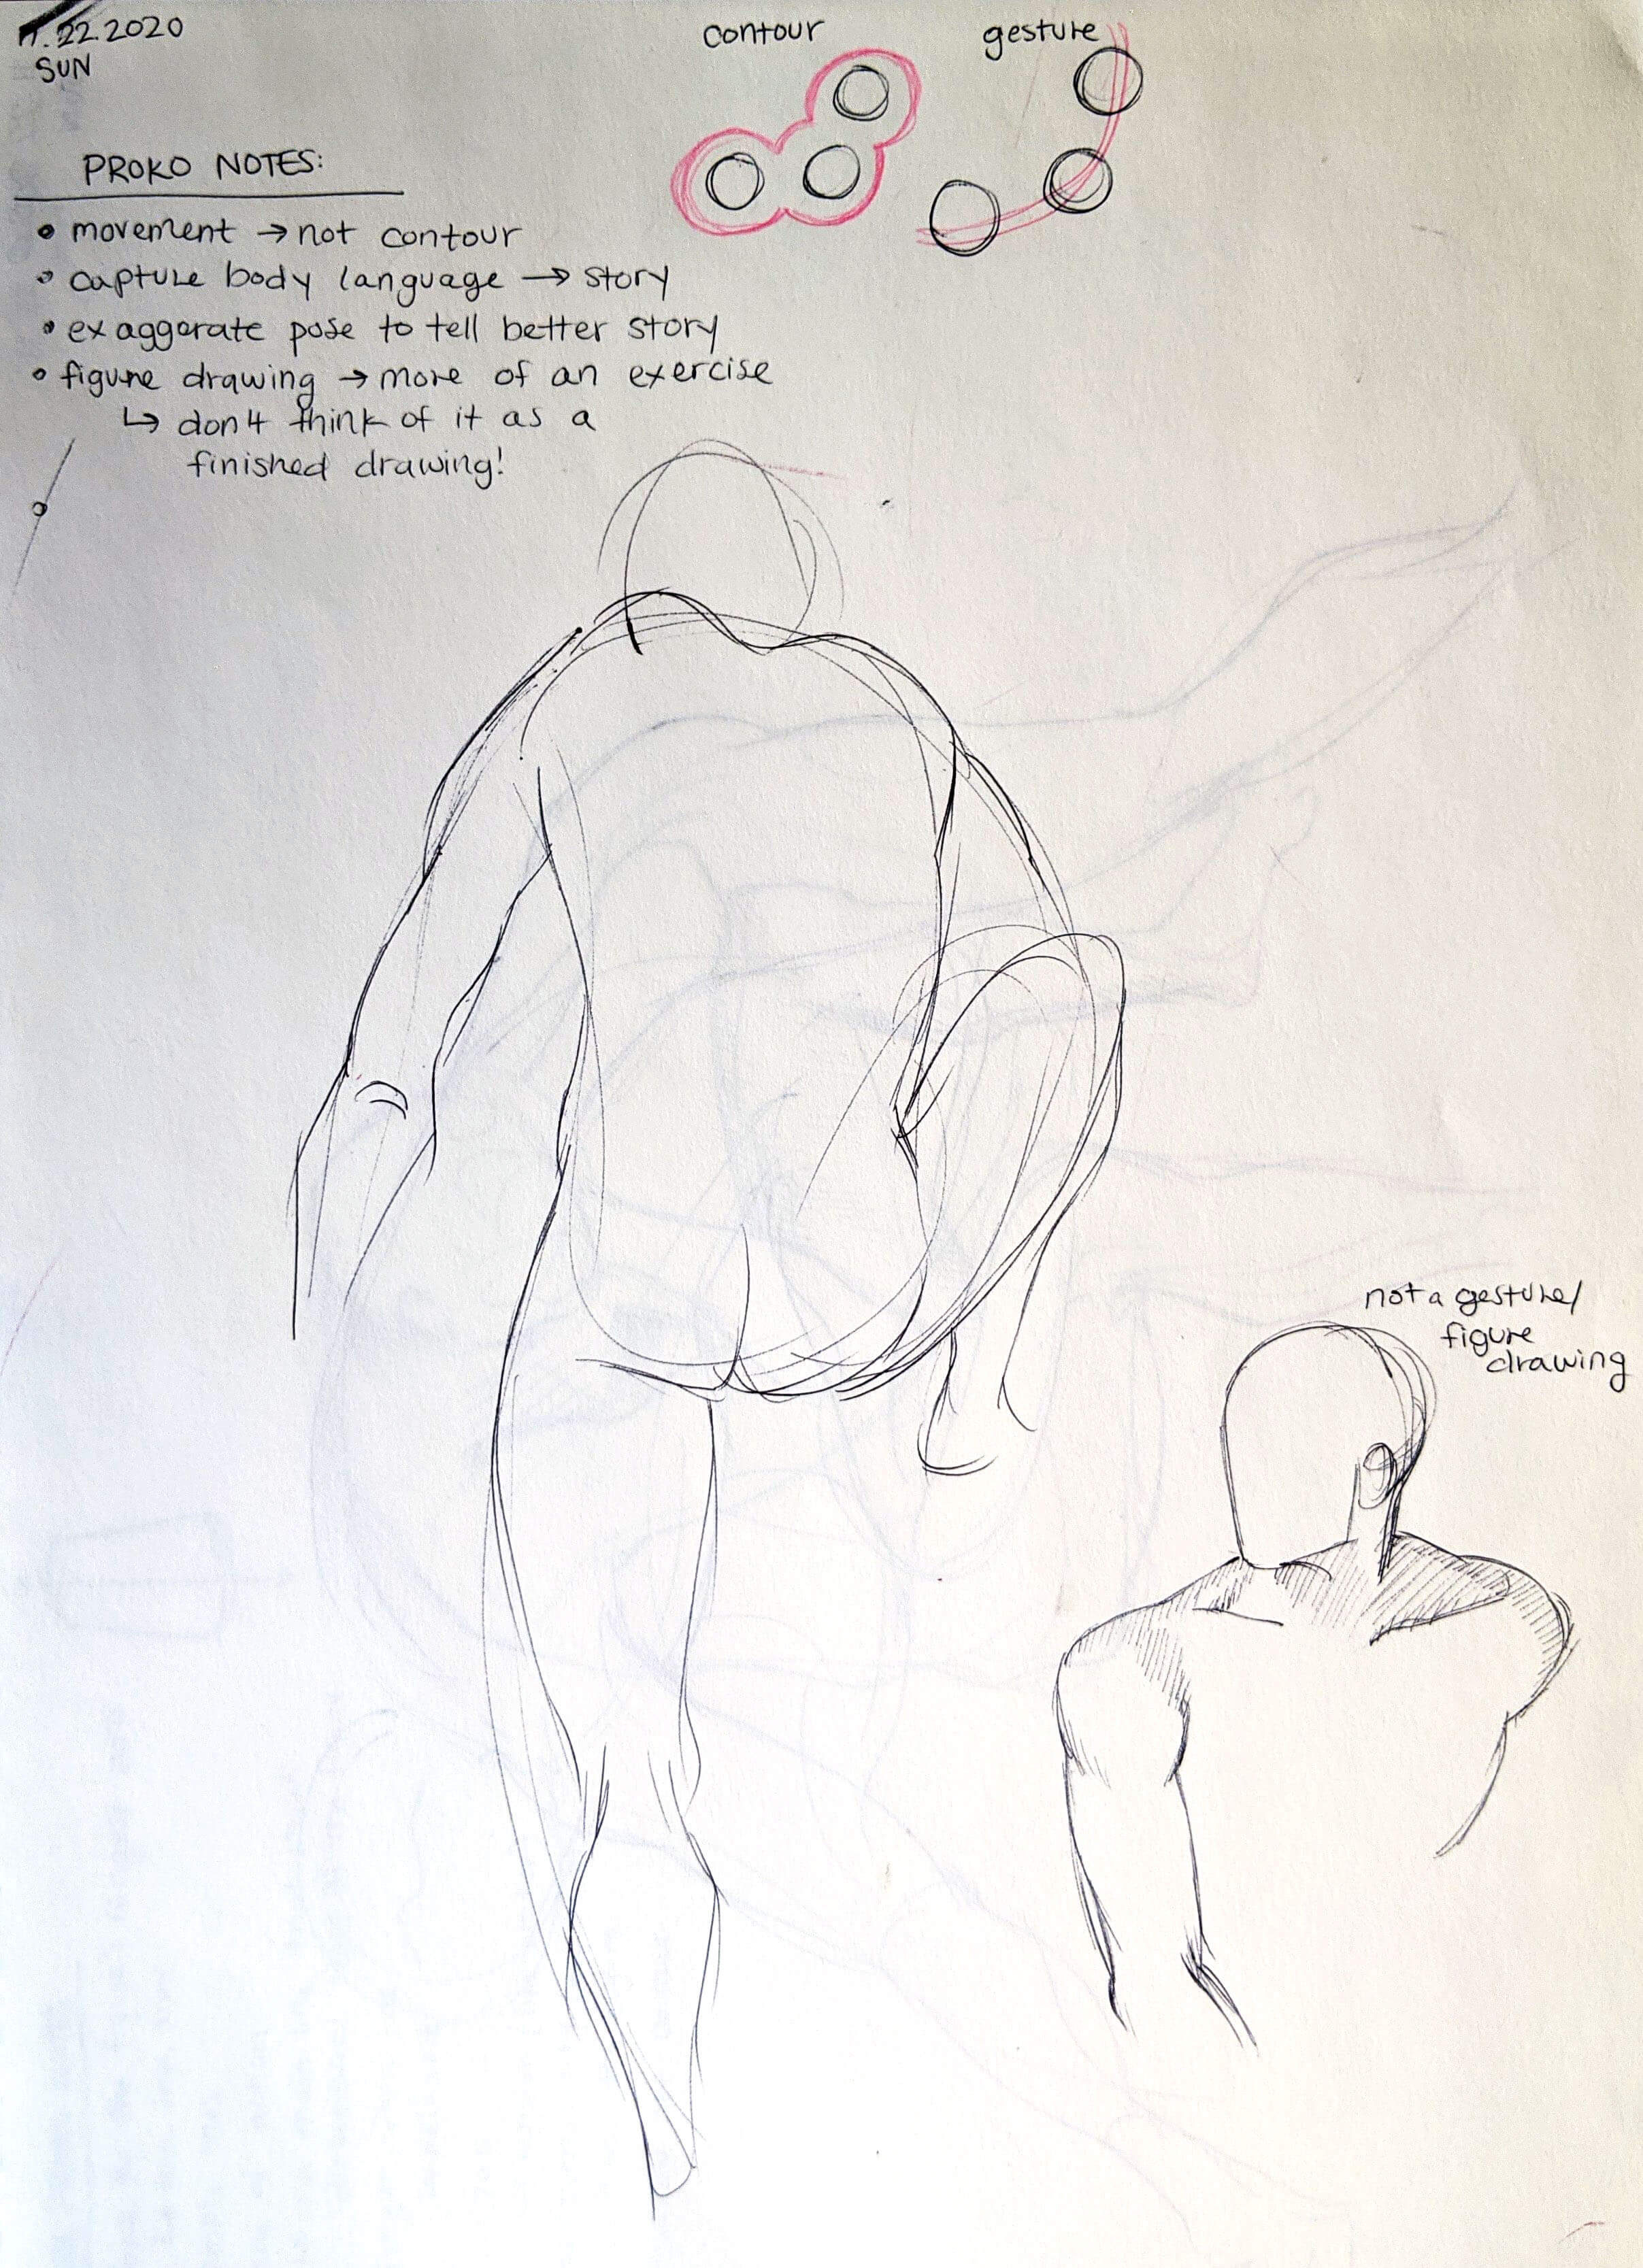 11.22.2020
SUN
contour
gesture
PROKO NOTES:
• movement → not contour
• capture body language → story
• exaggerate pose to tell better story
• figure drawing → more of an exercise
↳ don't think of it as a
finished drawing!
not a gesture/
figure
drawing